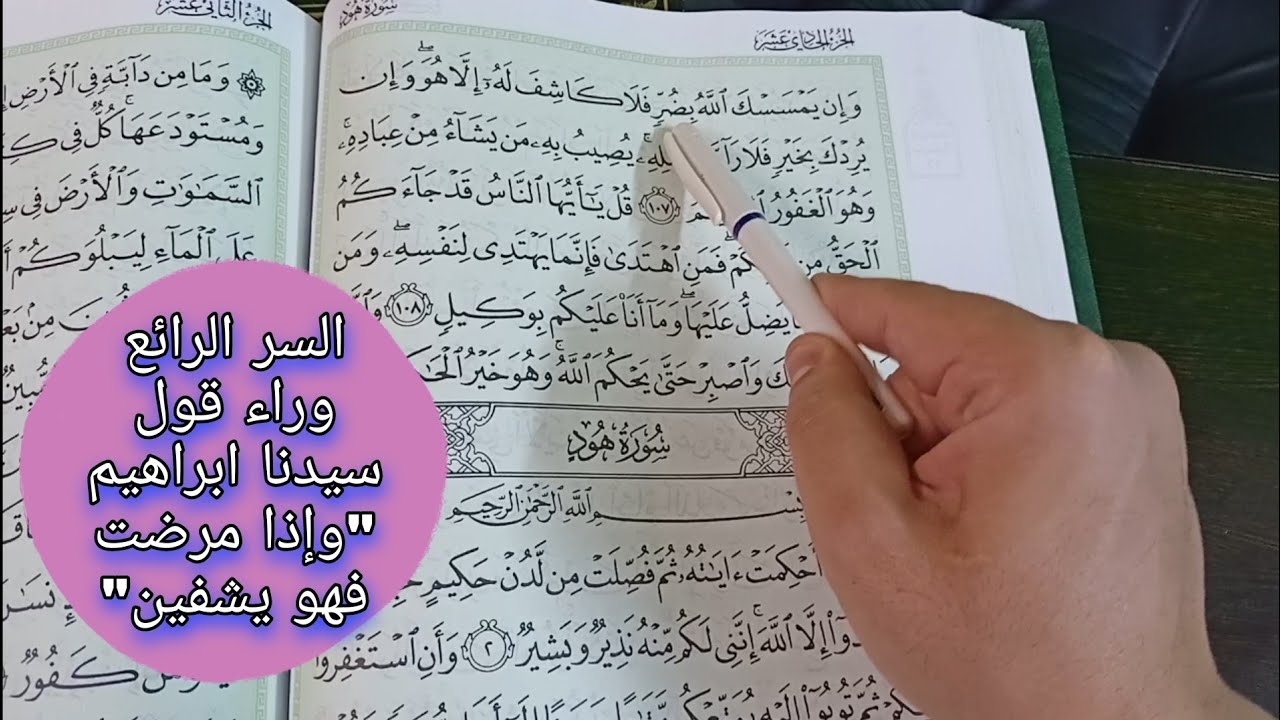 الجزء الحادي عشر
سورة هود
وَإِن يَمْسَسْكَ ٱللَّهُ بِضُرٍّ فَلَا كَاشِفَ لَهُۥٓ إِلَّا هُوَۖ وَإِن
يُرِدْكَ بِخَيْرٍ فَلَا رَآ يُصِيبُ بِهِۦ مَن يَشَآءُ مِنْ عِبَادِهِۦۚ
وَهُوَ ٱلْغَفُورُ ١٠٧ قُلْ يَٰٓأَيُّهَا ٱلنَّاسُ قَدْ جَآءَكُمُ
ٱلْحَقُّ مِن فَمَنِ ٱهْتَدَىٰ فَإِنَّمَا يَهْتَدِى لِنَفْسِهِۦۖ وَمَن
يَضِلُّ عَلَيْهَاۖ وَمَآ أَنَا۠ عَلَيْكُم بِوَكِيلٍ ١٠٨
وَٱصْبِرْ حَتَّىٰ يَحْكُمَ ٱللَّهُۚ وَهُوَ خَيْرُ
سُورَةُ هُودٍ
بِسْمِ ٱللَّهِ ٱلرَّحْمَٰنِ ٱلرَّحِيمِ
أُحْكِمَتْ ءَايَٰتُهُۥ ثُمَّ فُصِّلَتْ مِن لَّدُنْ حَكِيمٍ
إِلَّا ٱللَّهَۚ إِنَّنِى لَكُم مِّنْهُ نَذِيرٌ وَبَشِيرٌ ٢ وَأَنِ ٱسْتَغْفِرُوا۟
ثُمَّ تُوبُوٓا۟ إِلَيْهِ
الجزء الثاني عشر
وَمَا مِن دَآبَّةٍ فِى ٱلْأَرْضِ
وَمُسْتَوْدَعَهَاۚ كُلٌّ فِى
ٱلسَّمَٰوَٰتِ وَٱلْأَرْضَ فِى
عَلَى ٱلْمَآءِ لِيَبْلُوَكُمْ
مِنۢ
كَفُورٌ
السر الرائع
وراء قول
سيدنا ابراهيم
"وإذا مرضت
فهو يشفين"